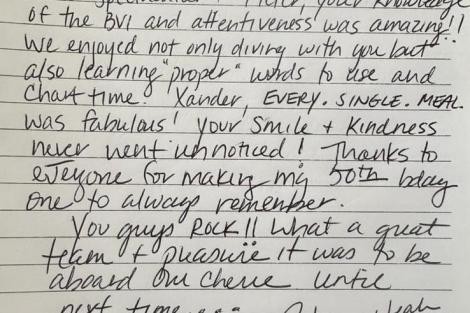 your knowledge
of the BVI and attentiveness was amazing!!
We enjoyed not only diving with you but
also learning "proper" words to use and
Chart time! Xander, EVERY. SINGLE. MEAL.
was fabulous! Your Smile + Kindness
never went unnoticed! Thanks to
everyone for making my 50th bday
one to always remember.
You guys ROCK!! What a great
team + pleasure it was to be
aboard
next time